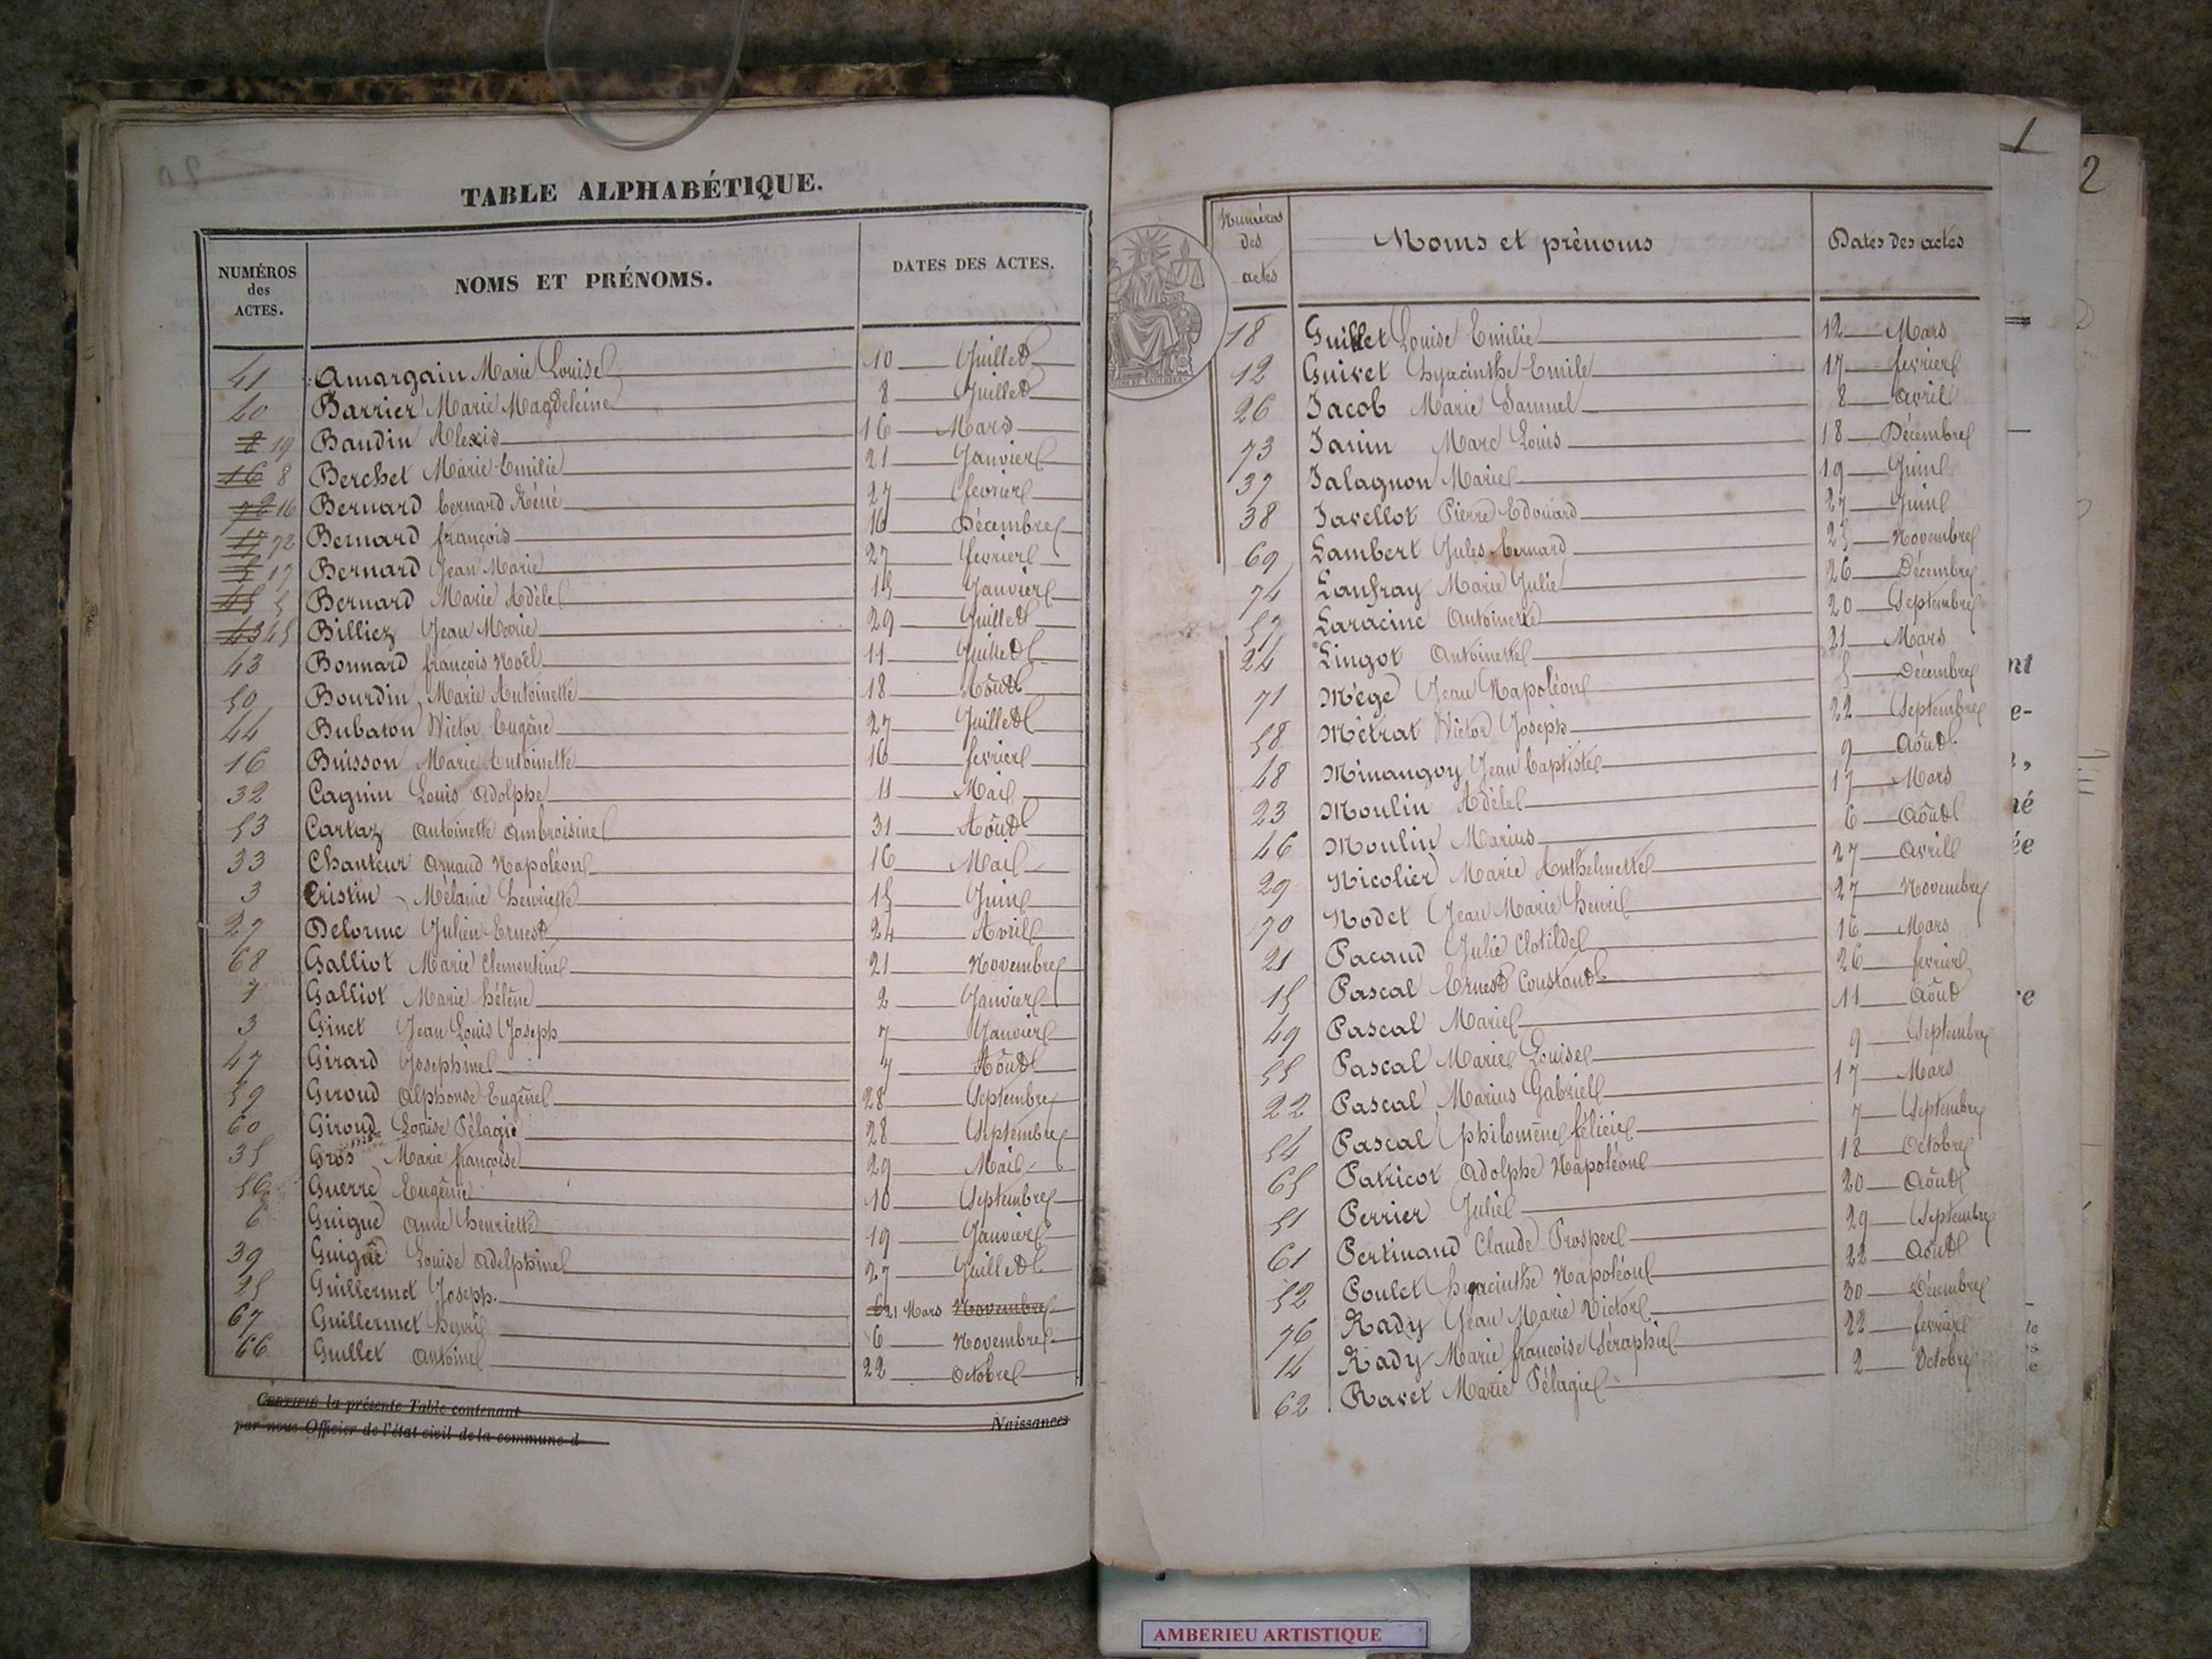 TABLE ALPHABÉTIQUE.
NUMÉROS des ACTES. NOMS ET PRÉNOMS. DATES DES ACTES.
41 Amargain Marie Louise 10 Juillet
40 Barrier Marie Magdeleine 8 Juillet
19 Baudin Alexis 16 Mars
16 8 Berchet Marie Emilie 21 Janvier
16 Bernard bernard Réné 27 fevrier
72 Bernard françois 16 Décembre
17 Bernard Jean Marie 27 fevrier
5 Bernard Marie Adèle 15 Janvier
43 45 Billiez Jean Marie 29 Juillet
43 Bonnard françois Noël 11 Juillet
50 Bourdin Marie Antoinette 18 Aôut
44 Bubaton Victor Eugène 27 Juillet
16 Buisson Marie Antoinette 16 fevrier
32 Cagnin Louis Adolphe 11 Mai
53 Cartaz Antoinette Ambroisine 31 Aôut
33 Chanteur Armand Napoléon 16 Mai
3 Cristin Mélanie henriette 15 Juin
27 Delorme Julien Ernest 24 Avril
68 Galliot Marie Clementine 21 Novembre
1 Galliot Marie hélène 2 Janvier
3 Ginet Jean Louis Joseph 7 Janvier
47 Girard Josephine 7 Aôut
59 Giroud Alphonse Eugène 28 Septembre
60 Giroud Louise Pélagie 28 Septembre
35 Gros Marie françoise 29 Mai
56 Guerre Eugénie 10 Septembre
6 Guigue Anne henriette 19 Janvier
39 Guigue Louise Adelphine 27 Juillet
25 Guillermet Joseph. 6 21 Mars Novembre
67 Guillermet henri 6 Novembre
66 Guillet Antoine 22 Octobre
CERTIFIÉ la présente Table contenant Naissances
par nous Officier de l'état civil de la commune d
1
2
Numéros des actes Noms et prénoms Dates des actes
18 Guillet Louise Emilie 12 Mars
12 Guivet hyacinthe Emile 17 fevrier
26 Jacob Marie Samuel 8 avril
73 Janin Marc Louis 18 Décembre
37 Jalagnon Marie 19 Juin
38 Javellot Pierre Edouard 27 Juin
69 Lambert Jules bernard 25 Novembre
74 Lanfray Marie Julie 26 Décembre
57 Laracine Antoinette 20 Septembre
24 Lingot Antoinette 21 Mars
71 Mège Jean Napoléon 5 Décembre
58 Métrat Victor Joseph 22 Septembre
48 Minangoy Jean baptiste 9 Aôut
23 Moulin Adèle 17 Mars
46 Moulin Marius 6 Aôut
29 Nicolier Marie Anthelmette 27 Avril
70 Nodet Jean Marie henri 27 Novembre
21 Pacaud Julie Clotilde 16 Mars
15 Pascal Ernest Constant 26 fevrier
49 Pascal Marie 11 Aôut
55 Pascal Marie Louise 9 Septembre
22 Pascal Marius Gabriel 17 Mars
54 Pascal philomène félicie 7 Septembre
65 Patricot Adolphe Napoléon 18 Octobre
51 Perrier Julie 20 Aôut
61 Pertinand Claude Prosper 29 Septembre
52 Poulet hyacinthe Napoléon 22 Aôut
76 Rady Jean Marie Victor 30 Décembre
14 Rady Marie françoise Séraphie 22 fevrier
62 Ravet Marie Pélagie 2 Octobre
AMBERIEU ARTISTIQUE